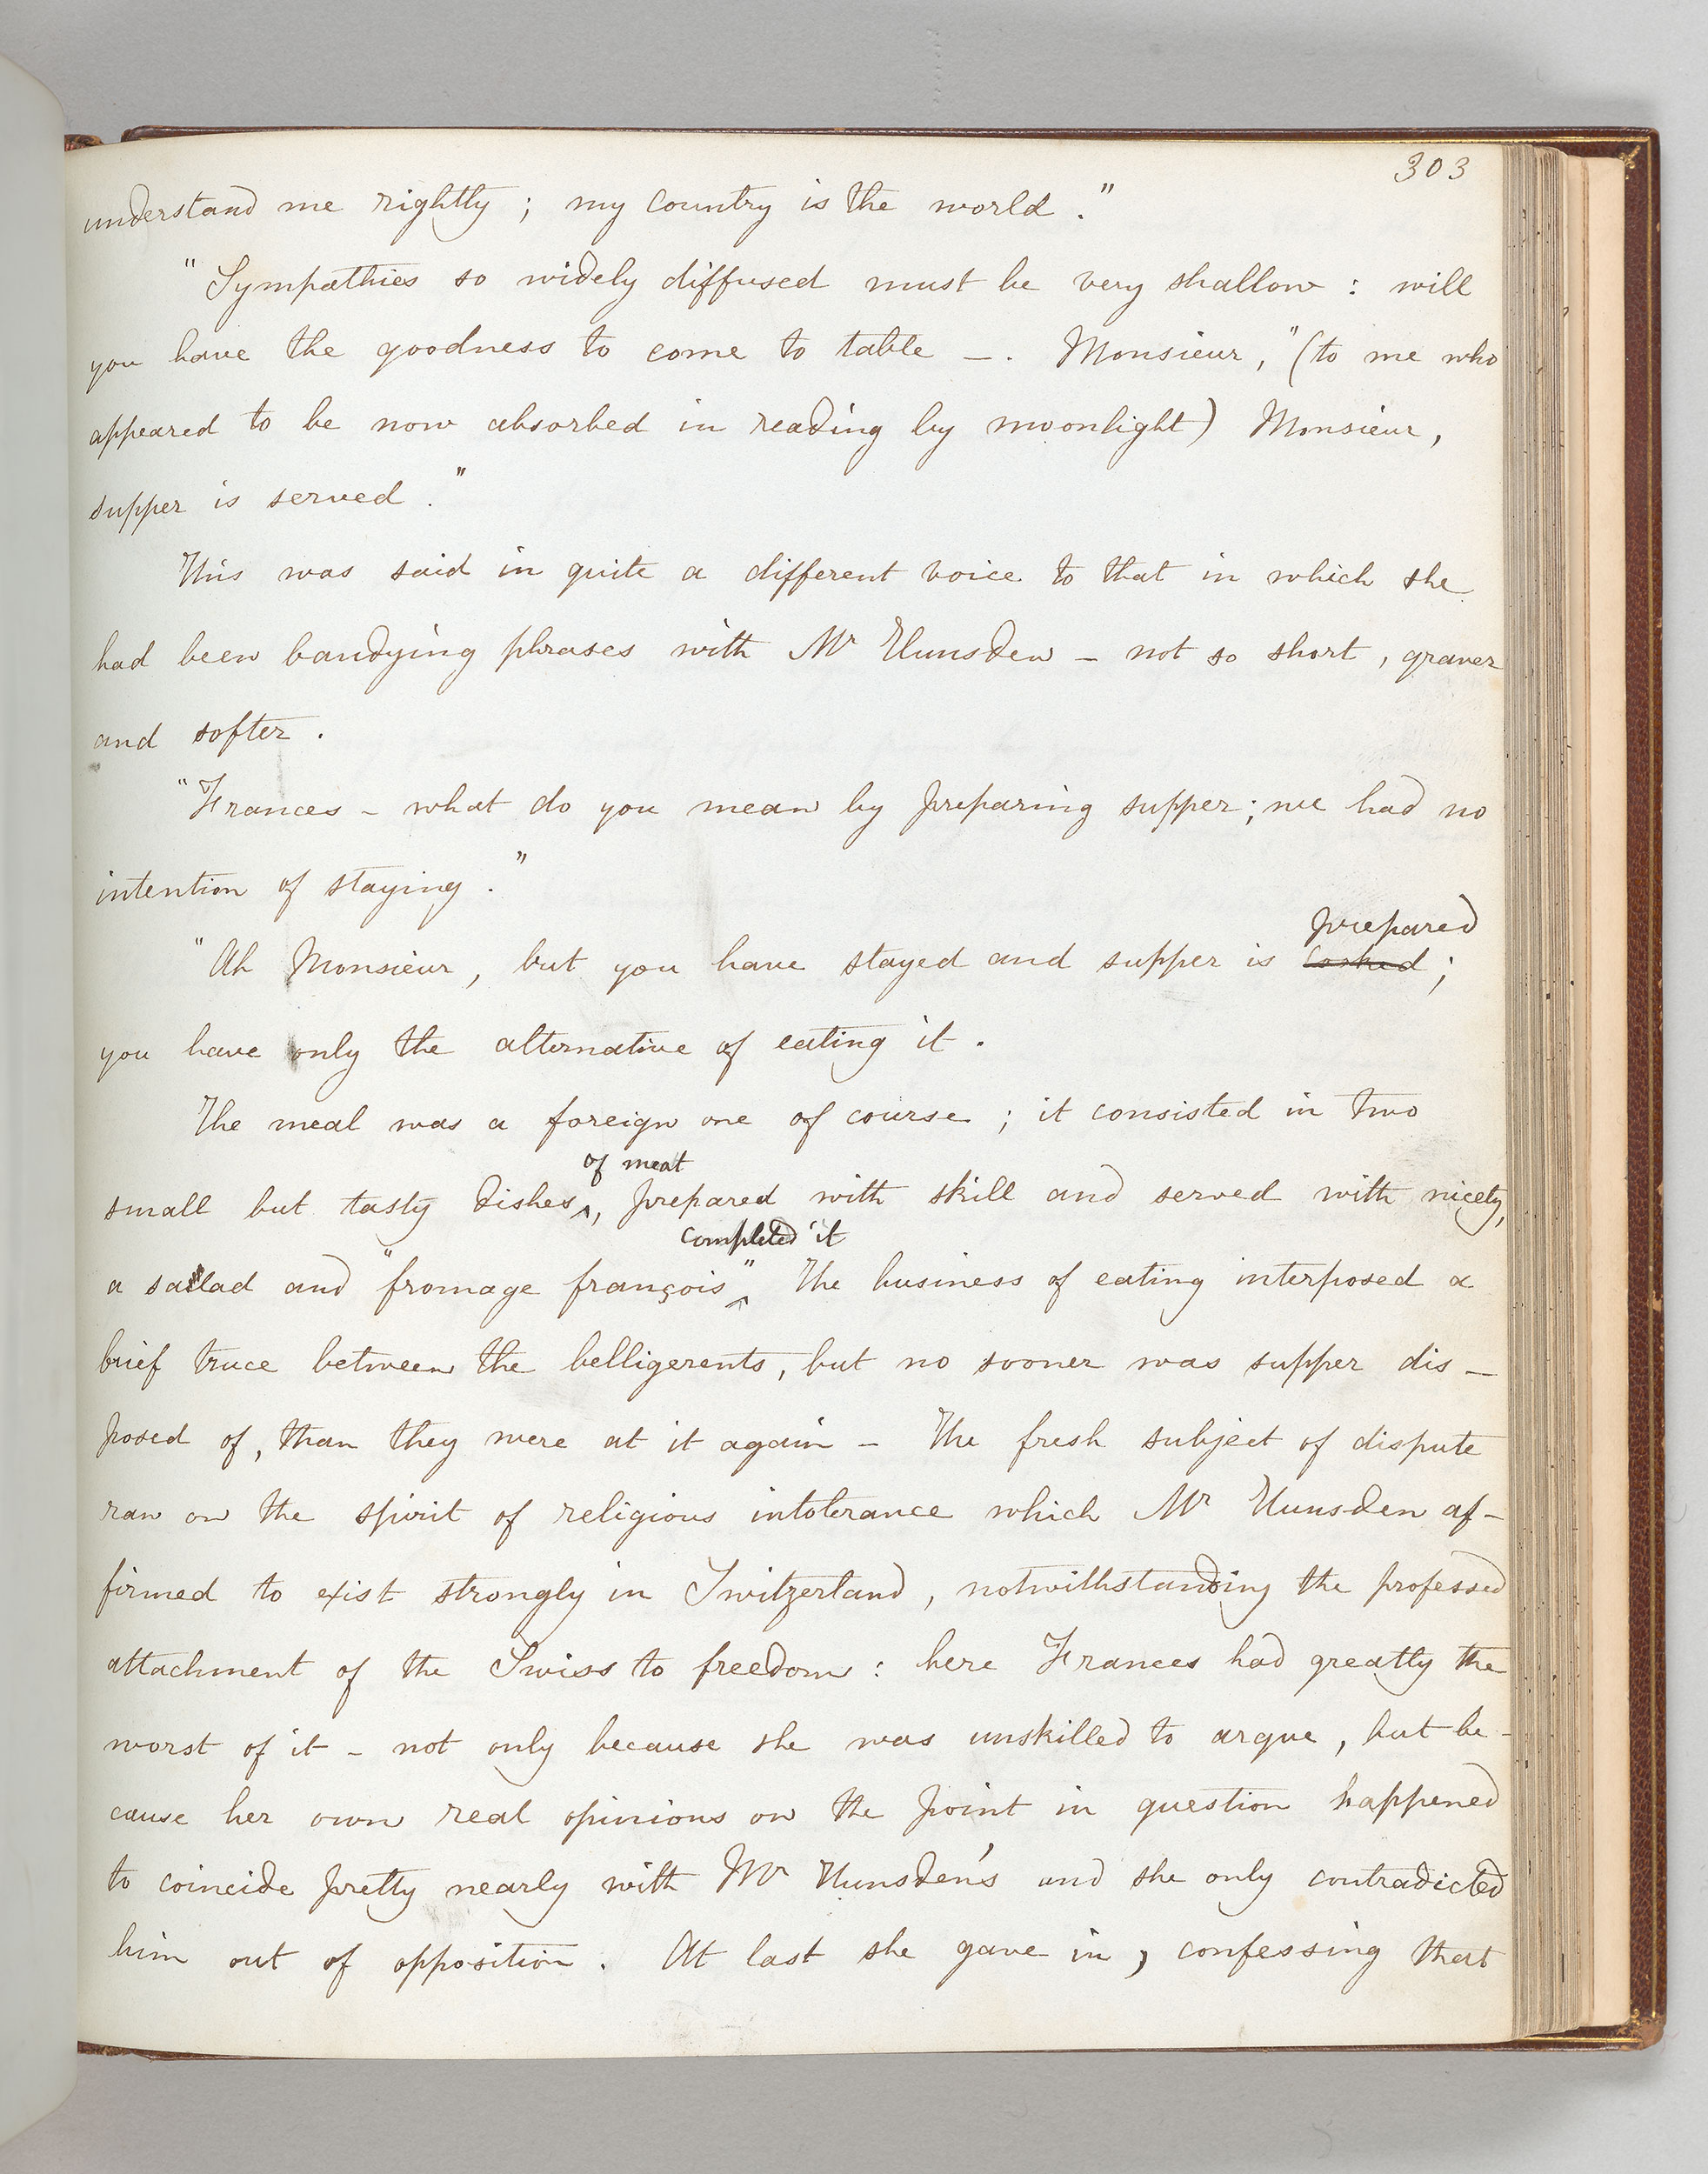 303
understand me rightly ; my Country is the world ."
"Sympathies so widely diffused must be very shallow : will
you have the goodness to come to table — . Monsieur," (to me who
appeared to be now absorbed in reading by moonlight) Monsieur,
supper is served ."
This was said in quite a different voice to that in which she
had been bandying phrases with Mr Hunsden – not so short , graver
and softer .
"Frances – what do you mean by preparing supper; we had no
intention of staying ."
prepared
"Ah Monsieur, but you have stayed and supper is cooked ;
you have only the alternative of eating it .
The meal was a foreign one of course ; it consisted in two
of meat
small but tasty dishes^, prepared with skill and served with nicety,
completed it
a salad and "fromage françois"^ The business of eating interposed a
brief truce between the belligerents, but no sooner was supper dis –
posed of, than they were at it again – The fresh subject of dispute
ran on the spirit of religious intolerance which Mr Hunsden af –
firmed to exist strongly in Switzerland , notwithstanding the professed
attachment of the Swiss to freedom : here Frances had greatly the
worst of it – not only because she was unskilled to argue , but be –
cause her own real opinions on the point in question happened
to coincide pretty nearly with Mr Hunsden's and she only contradicted
him out of opposition . At last she gave in , confessing that